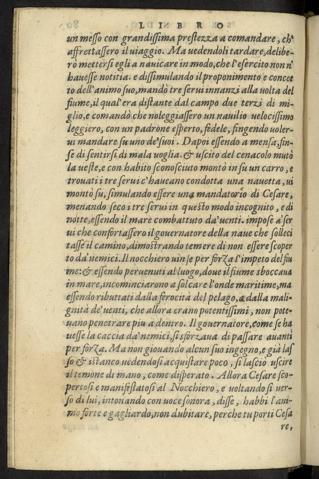 LIBRO
un messo con grandissima prestezza a comandare, ch'
affrettassero il uiaggio. Ma uedendoli tardare, delibe-
rò mettersi egli a nauicare in modo, che l'esercito non n'
hauesse notitia. e dissimulando il proponimento e concet
to dell'animo suo, mandò tre serui innanzi alla uolta del
fiume, il qual'era distante dal campo due terzi di mi-
glio, e comandò che noleggiassero un nauilio uelocissimo
leggiero, con un padrone esperto, fedele, fingendo uoler-
ui mandare su uno de'suoi. Dapoi essendo a mensa, fin-
se di sentirsi di mala uoglia. & uscito del cenacolo mutò
la ueste, e con habito sconosciuto montò in su un carro, e
trouati i tre serui c'haueano condotta una nauetta, ui
montò su, simulando essere uno mandatorio di Cesare,
menando seco i tre serui in questo modo incognito, e di
notte, essendo il mare combattuto da'uenti. impose a'ser
ui che confortassero il gouernatore della naue che solleci
tasse il camino, dimostrando temere di non essere scoper
to da'nemici. Il nocchiero uinse per forza l'impeto del fiu
me: & essendo peruenuti al luogo, doue il fiume sboccaua
in mare, incominciarono a solcare l'onde maritime, ma
essendo ributtati dalla ferocità del pelago, e dalla mali-
gnità de'uenti, che allora erano potentissimi, non pote-
uano penetrare piu a dentro. Il gouernatore, come se ha
uesse la caccia da'nemici, si sforzaua di passare auanti
per forza. Ma non giouando alcun suo ingegno, e già las
so & istanco uedendosi acquistare poco, si lasciò uscire
il temone di mano, come disperato. Allora Cesare sco-
pertosi e manifestatosi al Nocchiero, e uoltandosi uer-
so di lui, intonando con uoce sonora, disse, habbi l'ani-
mo forte e gagliardo, non dubitare, perche tu porti Cesa
re,